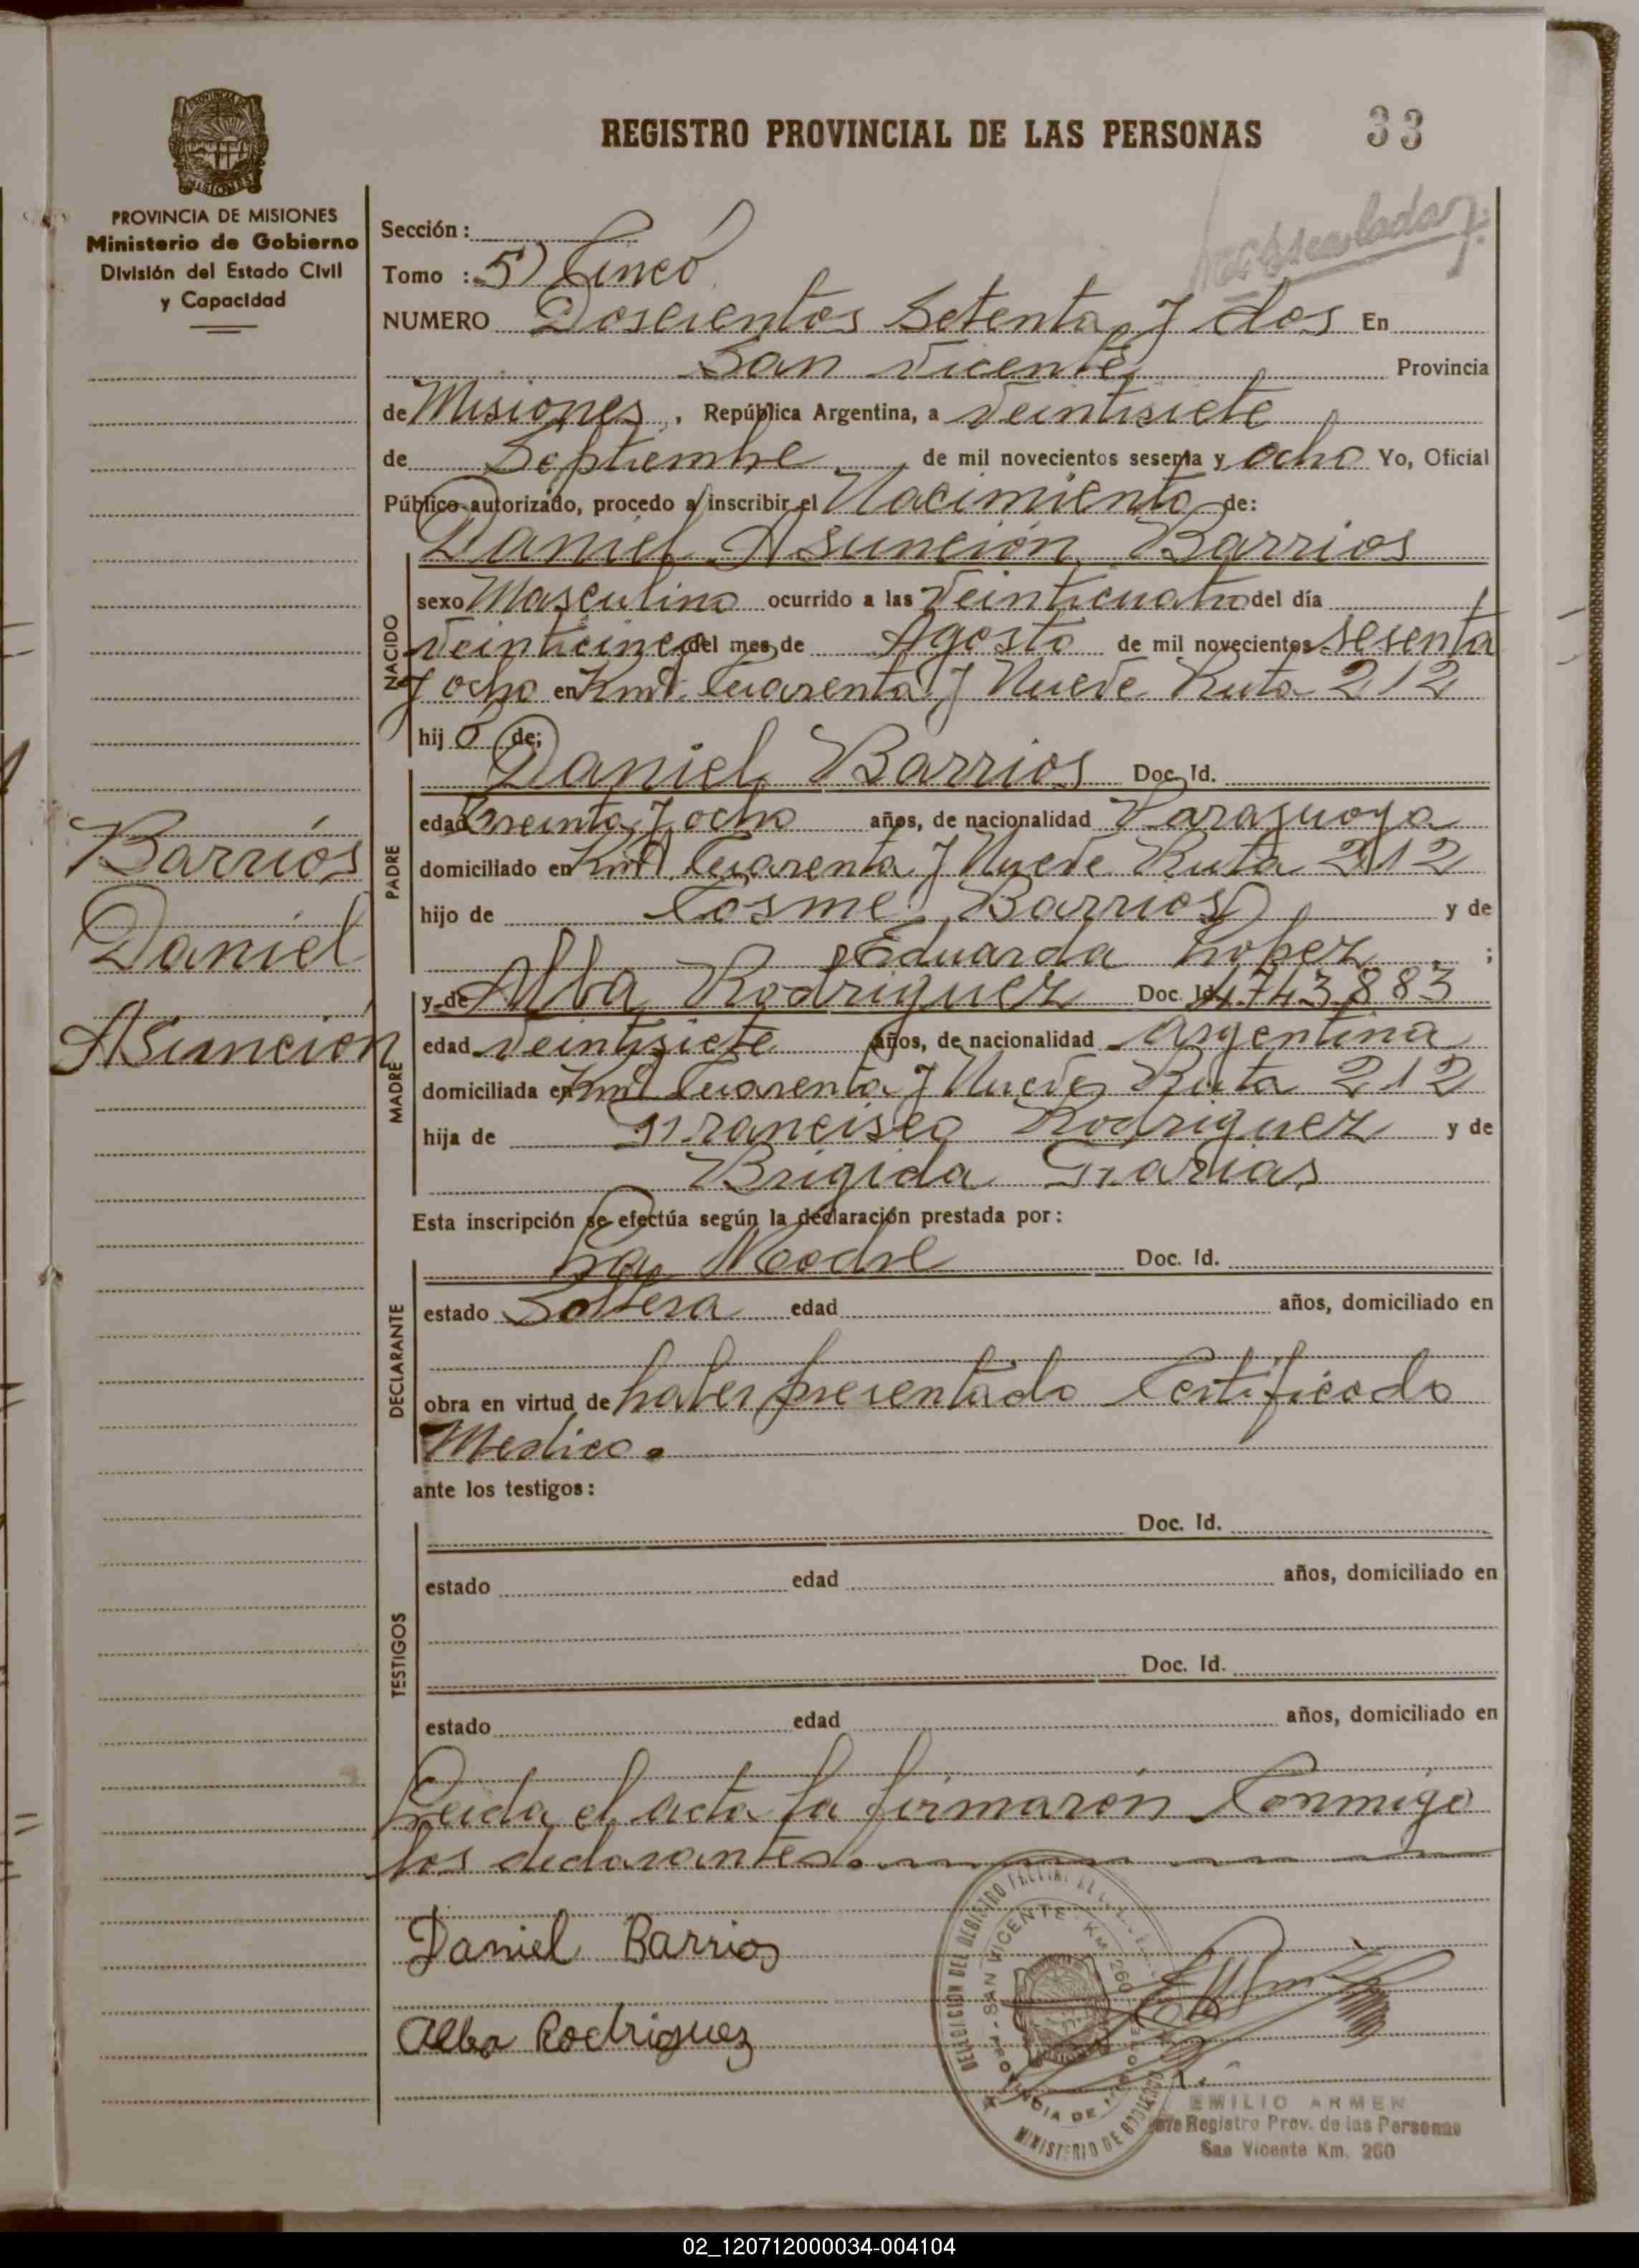 REGISTRO PROVINCIAL DE LAS PERSONAS
33
PROVINCIA DE MISIONES
MISIONES
PROVINCIA DE MISIONES
Ministerio de Gobierno
División del Estado Civil
y Capacidad
Sección :
Tomo : 5) Cinco
NUMERO Doscientos Setenta y dos En
San Vicente Provincia
de Misiones, República Argentina, a Veintisiete
de Septiembre de mil novecientos sesenta y ocho Yo, Oficial
Público autorizado, procedo a inscribir el Nacimiento de:
Daniel Asunción Barrios
NACIDO
sexo Masculino ocurrido a las Veinticuatro del día
Veinticinco del mes de Agosto de mil novecientos sesenta
y ocho en Kmt. Cuarenta y Nueve Ruta 212
hij o de;
PADRE
Daniel Barrios Doc. Id.
edad Treinta y ocho años, de nacionalidad Paraguaya
domiciliado en Kmt Cuarenta y Nueve Ruta 212
hijo de Cosme Barrios y de
Eduarda Lopez ;
MADRE
y de Alba Rodriguez Doc. Id. 4743883
edad Veintisiete años, de nacionalidad argentina
domiciliada en Kmt Cuarenta y Nueve Ruta 212
hija de Francisco Rodriguez y de
Brigida Farias
Barrios
Daniel
Asunción
Esta inscripción se efectúa según la declaración prestada por:
DECLARANTE
La Madre Doc. Id.
estado Soltera edad años, domiciliado en
obra en virtud de haber presentado Certificado
Medico.
ante los testigos:
TESTIGOS
Doc. Id.
estado edad años, domiciliado en
Doc. Id.
estado edad años, domiciliado en
Leida el acta la firmarón Conmigo
los declarantes.
Daniel Barrios
Alba Rodriguez
DELEGACION DEL REGISTRO
SAN VICENTE - KM 260
PROVINCIA DE MISIONES
MINISTERIO DE GOBIERNO
EMILIO ARMEN
Registro Prov. de las Personas
San Vicente Km. 260
02_120712000034-004104